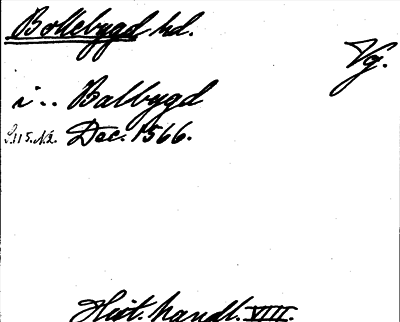 Bollebygd hd.
Vg.
i.. Balbygd
S. 115. N.2. Dec. 1566.
Hist. handl. VIII.